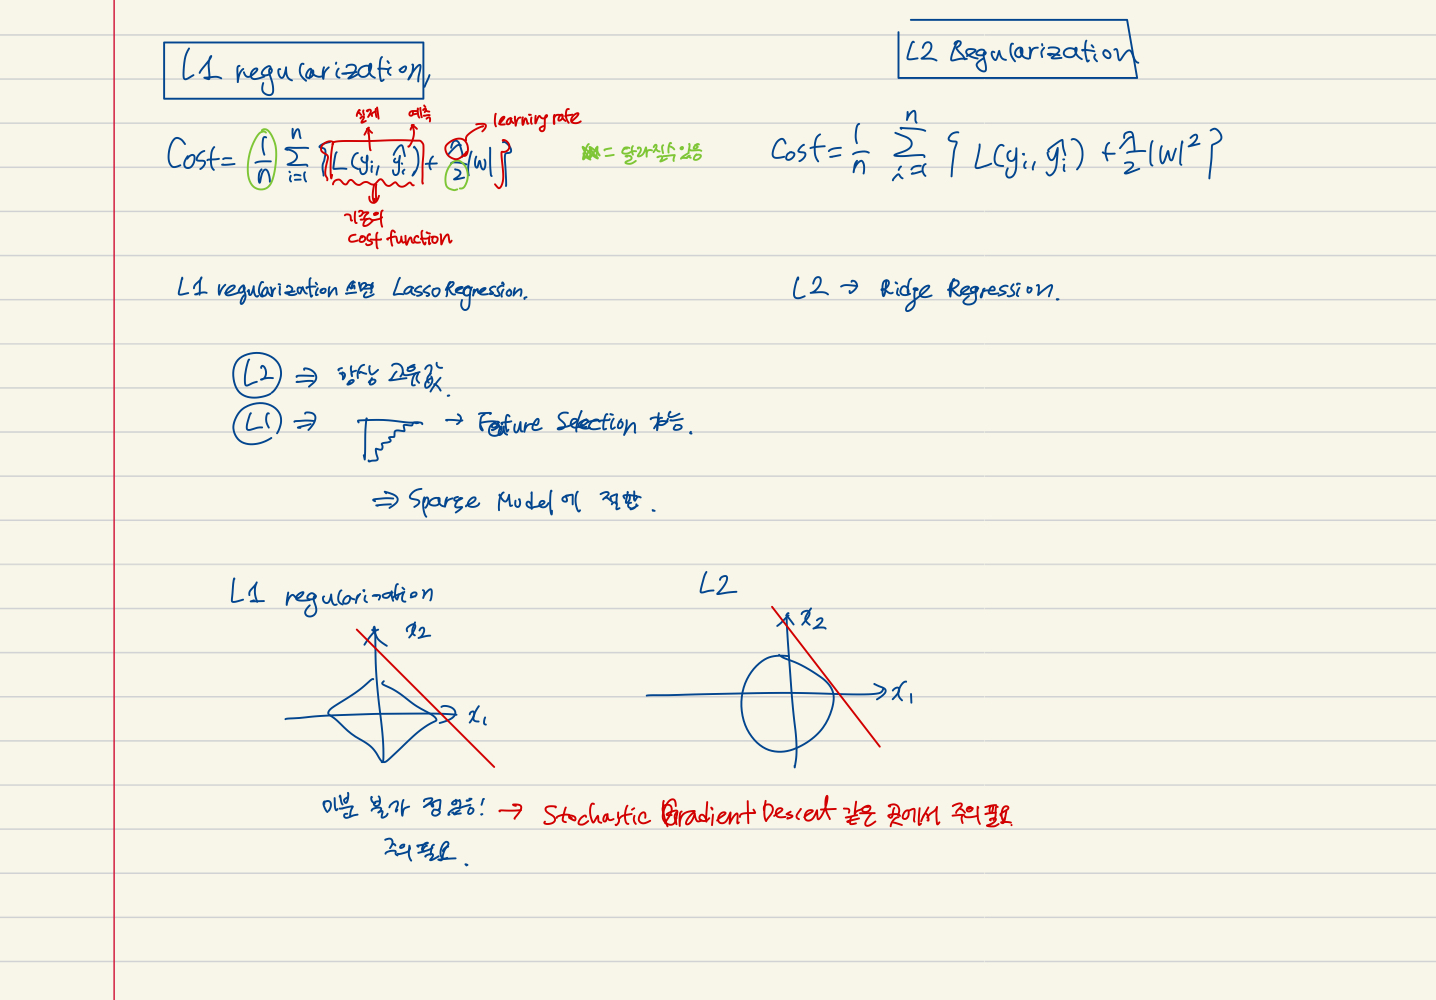 L1 regularization
L2 Regularization
실제 예측 learning rate
Cost = 1/n Σ_{i=1}^{n} { L(yi, ŷi) + λ/2 |w| }
= 달라질수있음
Cost = 1/n Σ_{i=1}^{n} { L(yi, ŷi) + λ/2 |w|² }
기존의
cost function
L1 regularization 쓰면 Lasso Regression.
L2 → Ridge Regression.
L2 ⇒ 항상 고유값.
L1 ⇒ → Feature Selection 가능.
⇒ Sparse Model에 적합.
L1 regularization
L2
x2
x2
x1
x1
미분 불가 점 있음! → Stochastic Gradient Descent 같은 곳에서 주의필요
주의필요.